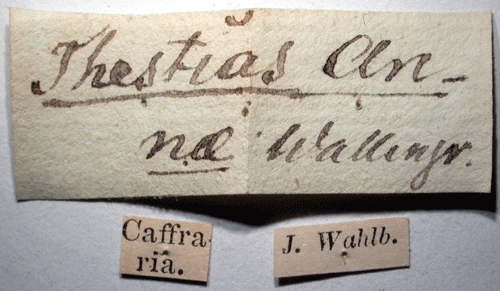 Thestias An-
næ Wallengr.
Caffra-
ria.
J. Wahlb.